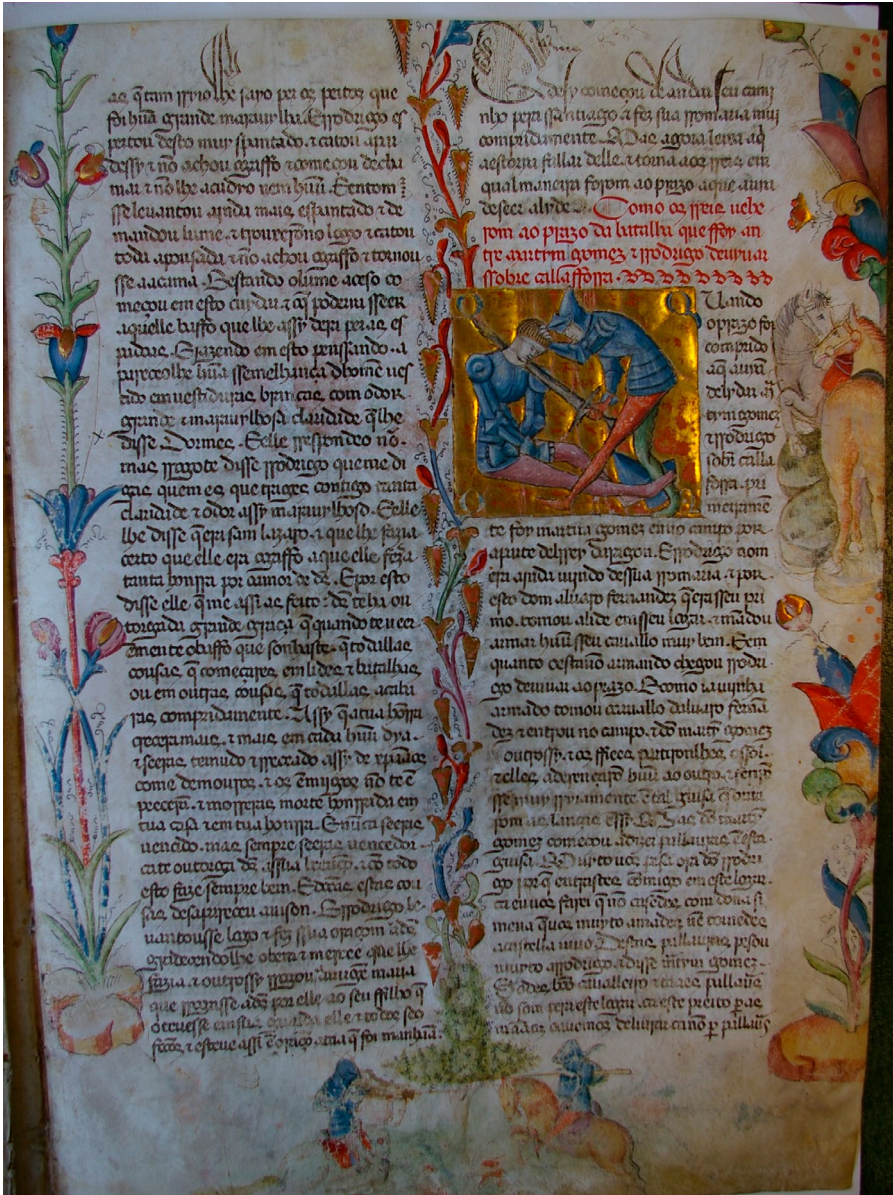 as q̃ tam rrijo lhe sayo per os peitos que
foi hũa grande marauylha. E rrodrigo es
pertou desto muy spantado. & catou apar
dessy & nõ achou o gaffo & começou de cha
mar & nõ lhe acudyo nem hũu. E entom
sse levantou ajnda mais espantado & de
mandou lume. & trouxerõno logo & catou
toda a pousada & nõ achou o gaffo & tornou
sse aa cama. E estando o lume aceso co
meçou em esto cuydar. & q̃ poderia sseer
aquelle baffo que lhe assy dera per as es
padoas. E jazendo em esto penssando. a
pareceo lhe hũa ssemelhança d homẽ ues
tido em uestiduras brancas. com odor
grande & marauylhosa claridade q̃ lhe
disse Dormes. E elle rrespondeo nõ.
mas rrogote disse rrodrigo que me di
gas quem es que trages contigo tanta
claridade & odor assy marauylhoso. E elle
lhe disse q̃ era sam lazaro. & que lhe fazia
certo que elle era o gaffo a que elle fez̃a
tanta honrra por amor de ds̃. E por esto
disse elle q̃ me assi as feito. ds̃ te ha ou
torgada grande graça q̃ quando te ueer
ẽmente o baffo que sonhaste. q̃ todallas
cousas q̃ começares em lides & batalhas
ou em outras cousas q̃ todallas acaba
ras compridamente. Assy q̃ a tua hõrra
q̃cera mais & mais em cada hũu dya.
& seeras temudo & rreceado assy de xp̃aãos
come de mouros. & os ẽmijgos nõ te ẽ
peecerã. & morreras morte honrrada em
tua casa & em tua honrra. E nũca seeras
uencido. mas sempre seeras uencedor
ca te outorga ds̃ a ssua beençõ. & cõ todo
esto faze sempre bem. E ditas estas cou
sas desapareceu a uison. E rrodrigo le
uantousse logo & fez sua oraçom a ds̃
gradecendolhe a obra & mercee que lhe
fazia. & outrossy rrogou a uirgẽ maria
que rrogasse a ds̃ por elle ao seu ffilho q̃
ouuesse em sua guarda elle & todos seos
fectos & esteue assi ẽ oraçõ ataa q̃ foi manhãa.
E desy começou de andar seu cami
nho pera santiago & fez sua rromaria mui
compridamente. Mas agora leixa aq̃
a estoria fallar delle. & torna aos rreis em
qual maneira forom ao prazo a que auiã
de seer a lyde
Como os rreis uehe
rom ao prazo da batalha que ffoy an
tre martym gomez & rrodrigo de uyuar
ssobre callafforra
Quando
o prazo foy
comprido
a q̃ auiã
de lydar m̃
tym gomez
& rrodrigo
sobr̃ calla
forra. pri
meiramẽ
te foy martim gomez em o campo por
a parte del rrey d aragon. E rrodrigo nom
era ajnda ujndo de ssua rromaria. & por
esto dom aluaro fernandez q̃ era sseu pri
mo. tomou a lide em seu logar. & mãdou
armar hũu sseu cauallo muy bem. E em
quanto o estauã armando chegou rrodri
go de uiuar ao prazo. E como ja vinha
armado tomou o cauallo d aluaro fernã
dez & entrou no campo. & dõ martĩ gomez
outrossy. & os ffiees partironlhes o ssol.
& elles aderençarõ hũu ao outro. & ferirõ
sse muy rriiamente ẽ tal guisa q̃ britar
rom as lanças em ssy. E dõ martĩ
gomez começou a dizer pallauras ẽ esta
guisa. Muyto uos pesa ora dõ rrodri
go por q̃ entrastes comigo em este logar.
ca eu uos farei q̃ nõ casedes com dona xi
mena q̃ uos muyto amades nẽ tornedes
a castella uiuo. Destas pallauras pesou
muyto a rrodrigo. & disse a m̃tym gomez.
Sodes bõo caualleiro & taaes pallauras
nõ som pera este logar. ca este preito per as
maãos auemos de liurar ca nõ per pallauras